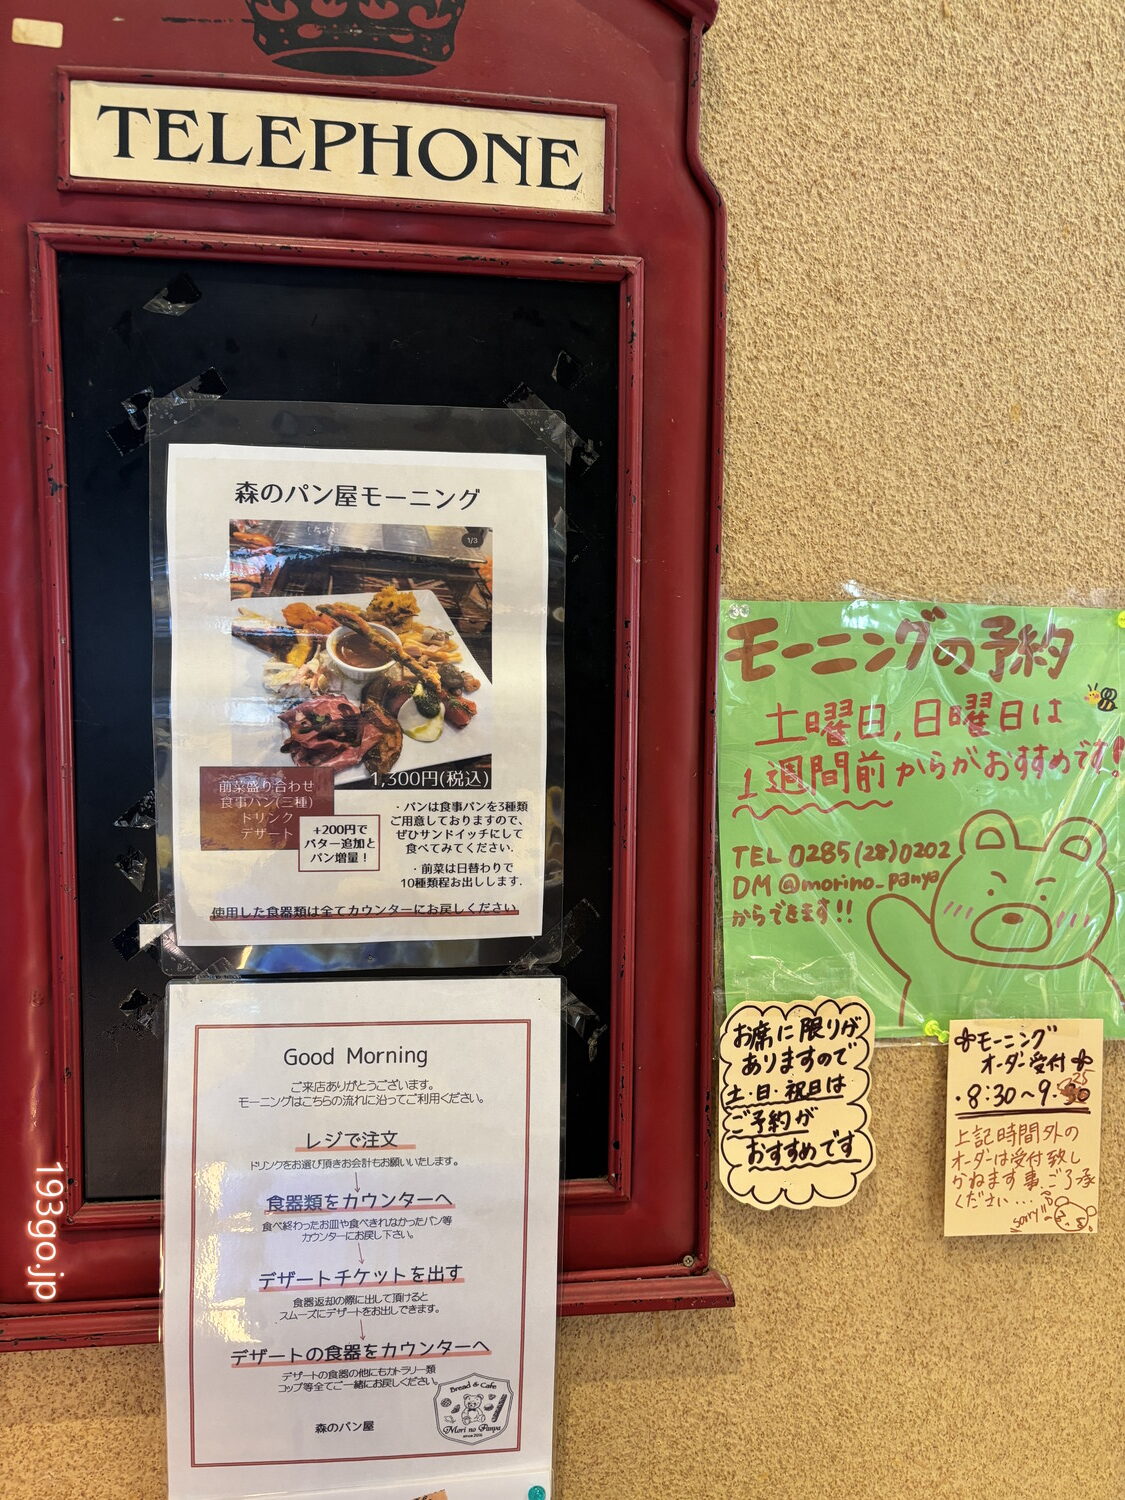 TELEPHONE
森のパン屋モーニング
1/3
1,300円(税込)
前菜盛り合わせ
食事パン(三種)
ドリンク
デザート
+200円で
バター追加と
パン増量！
・パンは食事パンを3種類
ご用意しておりますので、
ぜひサンドイッチにして
食べてみてください。
・前菜は日替わりで
10種類程お出しします。
使用した食器類は全てカウンターにお戻しください
Good Morning
ご来店ありがとうございます。
モーニングはこちらの流れに沿ってご利用ください。
レジで注文
ドリンクをお選び頂きお会計もお願いいたします。
↓
食器類をカウンターへ
食べ終わったお皿や食べきれなかったパン等
カウンターにお戻し下さい。
↓
デザートチケットを出す
食器返却の際に出して頂けると
スムーズにデザートをお出しできます。
↓
デザートの食器をカウンターへ
デザートの食器の他にもカトラリー類
コップ等全てご一緒にお戻しください。
森のパン屋
Bread & Cafe
Mori no Panya
since 2016
モーニングの予約
土曜日,日曜日は
1週間前からがおすすめです!
TEL 0285(28)0202
DM @morino_panya
からできます!!
お席に限りが
ありますので
土・日・祝日は
ご予約が
おすすめです
モーニング
オーダー受付
・8:30〜9:
上記時間外の
オーダーは受付致し
かねます事、ご了承
ください…
sorry
193go.jp